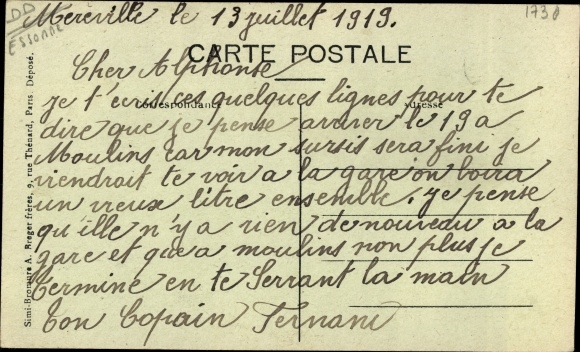 DD
ESSONNE
1738
Méréville le 13 juillet 1919.
CARTE POSTALE
Correspondance
Adresse
Cher Alphonse
je t'écris ces quelques lignes pour te
dire que je pense arriver le 19 a
Moulins car mon sursis sera fini je
viendrait te voir a la gare on boira
un vieux litre ensemble. je pense
qu'ille n'y a rien de nouveau a la
gare et que a moulins non plus je
Termine en te Serrant la main
Ton Copain Fernand
Simi-Bromure A. Breger frères, 9, rue Thénard, Paris. Déposé.